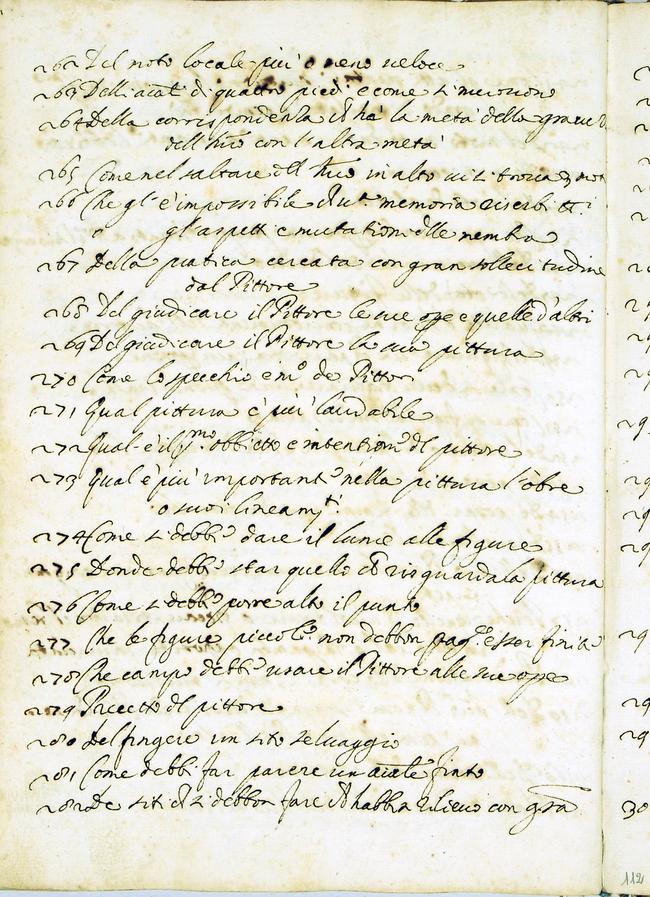 262 Del moto locale più o meno veloce
263 Delli aĩali di quattro piedi e come si muovono
264 Della corrispondenza ch ha la metà della
dell'hũo con l'altra metà
265 Come nel saltare dell'hũo in alto vi si trova 3 moti
266 Che gl'è impossibile ch una memoria riserbi tt.i
gl'aspetti e mutationi dlle membra
267 Della pratica cercata con gran sollecitudine
dal Pittore
268 Del giudicare il Pittore le sue ope e quelle d'altri
269 Del giudicare il Pittore la sua pittura
270 Come lo specchio e m.o de Pittori
271 Qual pittura è più laudabile
272 Qual è il p.mo obbietto e intention.e dl pittore
273 Qual è più important.e nella pittura l'õbre
o suoi lineam.ti
274 Come si debb.e dare il lume alle figure
275 Donde debb.e star quello ch risguarda la pittura
276 Come si debb.e porre alto il punto
277 Che le figure piccol.e non debbon p rag.e esser finite
278 Che campo debb.e usare il Pittore alle sue ope
279 Precetto dl pittore
280 Del fingere un sito selvaggio
281 Come debbi far parere un aĩale finto
282 De siti ch si debbon fare ch habbia rilievo con grã
112